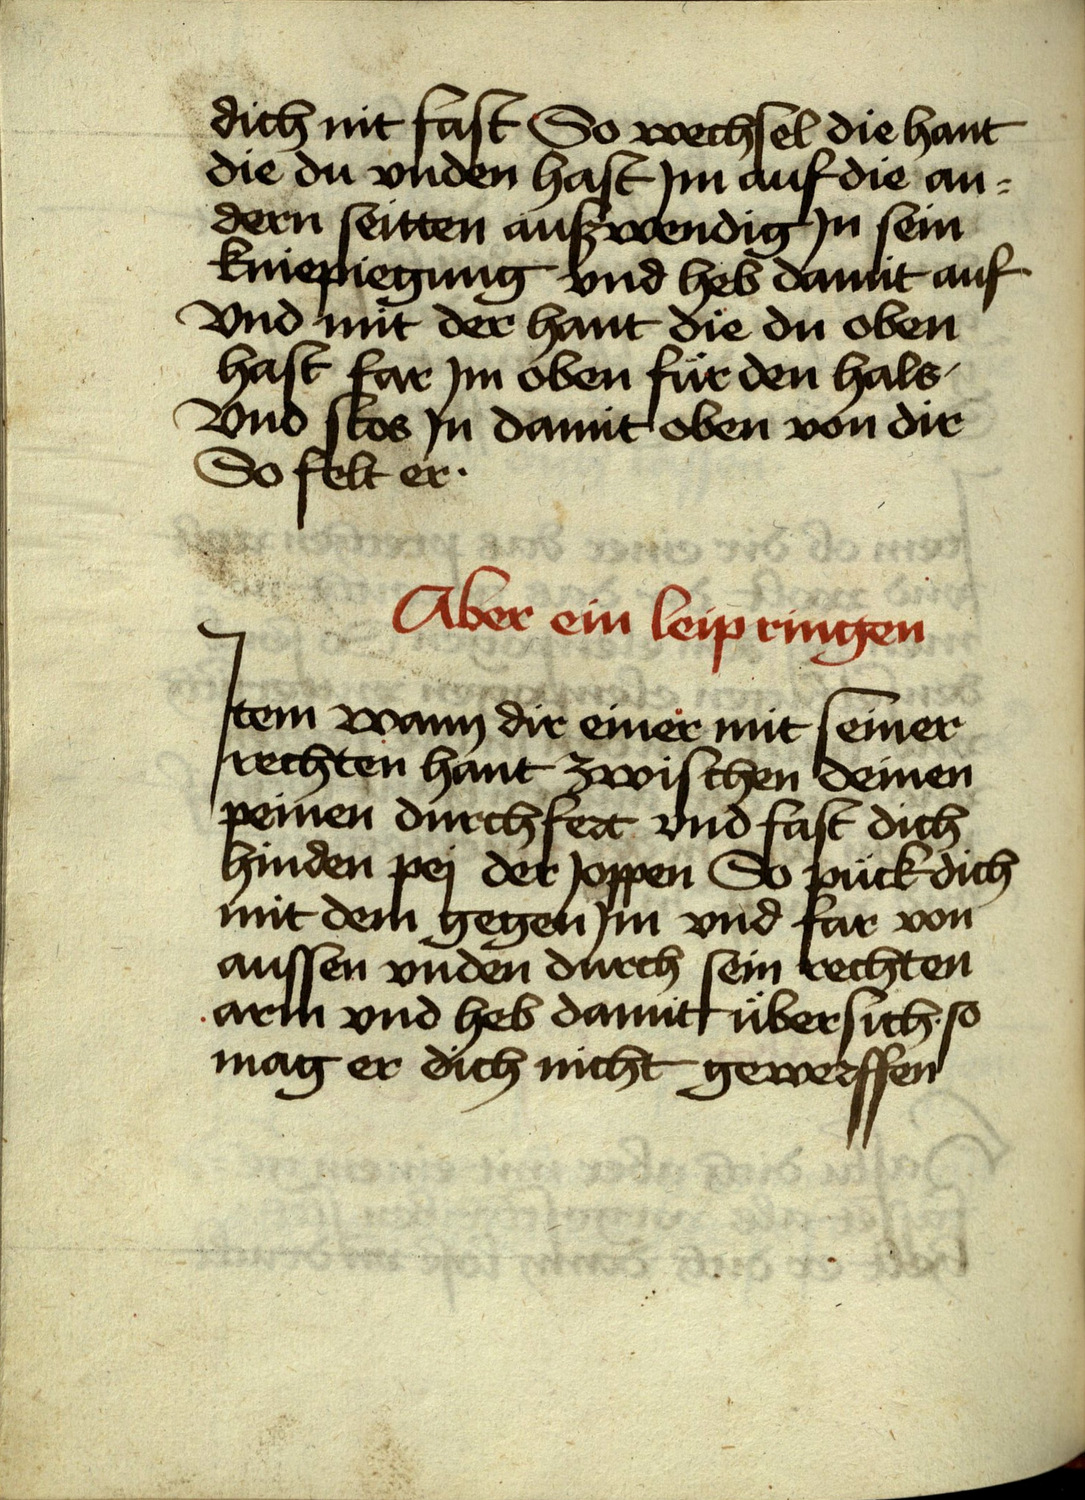 dich nit fast So wechsel die hant
die du vnden hast Jm auf die an=
dern seitten außwendig Jn sein
kniepiegung vnd heb damit auf
Vnd mit der hant die du oben
hast far Jm oben für den hals
Vnd stos Jn damit oben von dir
So felt er.
Aber ein leip ringen
Jtem wann dir einer mit seiner
rechten hant zwischen deinen
peinen durchfert vnd fast dich
hinden pej der Joppen So pück dich
mit dem gegen Jm vnd far von
aussen vnden durch sein rechten
arm vnd heb damit übersich. so
mag er dich nicht gewerffen